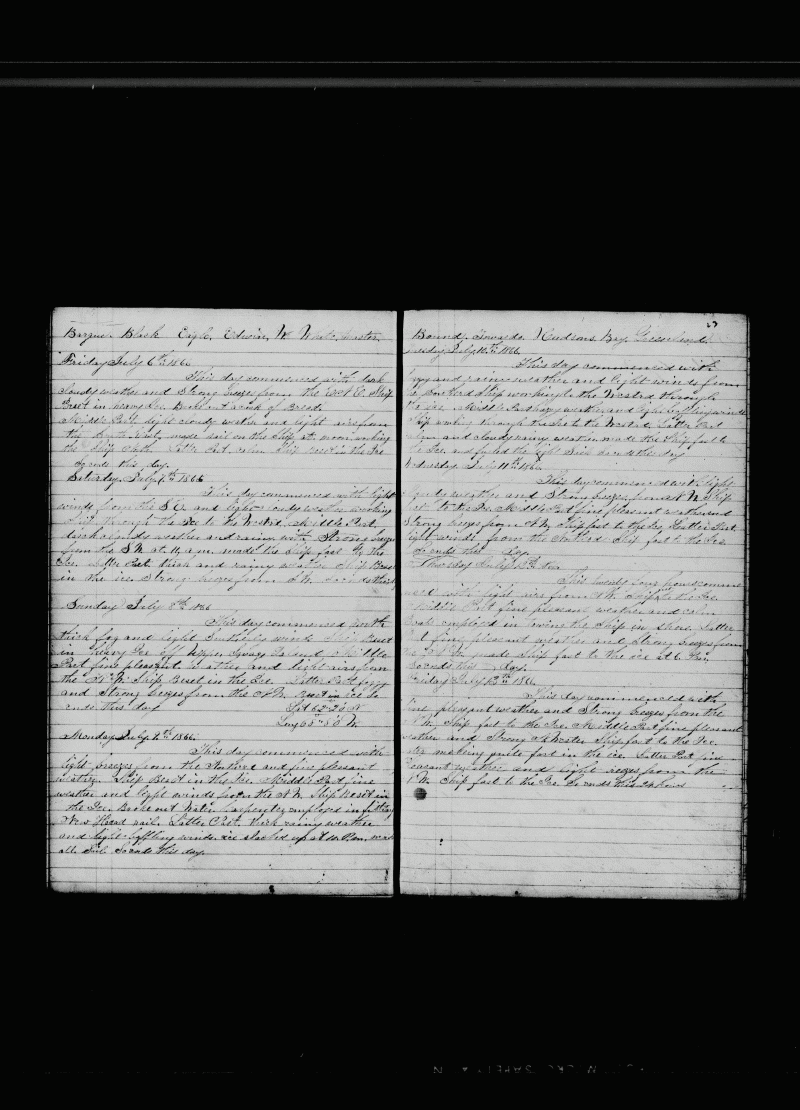 Barque Black Eagle. Edwin. W. White. Master.
Friday July 6th 1866
This day commenced with dark
cloudy weather and Strong breezes from the N E. Ship
Beset in heavy Ice. Broke out a cask of Bread.
Middle Part light cloudy weather and light airs from
the made sail on the Ship at noon working
the Ship North. Latter Part. calm Ship beset in the Ice
So ends this day.
Saturday. July 7th 1866
This day commenced with light
winds from the S E. and cloudy weather working
Ship through the Ice to the Westrd. Middle Part
thick cloudy weather and rainy with Strong breezes
from the S W. at 4, a.m. made the Ship fast to the
Ice. Latter Part thick and rainy weather Ship Beset
in the ice. Strong breezes from S W. So ends this day
Sunday July 8th 1866
This day commenced with
thick fog and light Southerly winds Ship Beset
in heavy Ice off upper Savage Island, Middle
Part fine pleasant weather and light airs from
the N W. Ship Beset in the Ice. Latter Part foggy
and Strong breezes from the N W. Beset in ice So
ends this day Lat 62-30 N
Long W.
Monday July 9th 1866.
This day commenced with
light breezes from the Northerd and fine pleasant
weather. Ship Beset in the Ice. Middle Part fine
weather and light winds from the N W. Ship Beset in
the Ice. Broke out Water. Carpenter employed in fitting
New Head rail. Latter Part. thick rainy weather
and light baffling winds. ice slacked up at 10 P.m, made
all Sail. So ends this day.
27
Bound. Towards. Hudsons Bay. Greenland.
Tuesday July 10th 1866
This day commenced with
foggy and rainy weather and light winds from
the Southerd Ship working to the Westrd through
the ice. Middle Part foggy weather and light baffling winds
Ship working through the Ice to the Westrd. Latter Part
calm and cloudy rainy weather. made the Ship fast to
the Ice, and furled the light Sails So ends this day
Wednesday. July 11th 1866
This day commenced with light
cloudy weather and Strong breezes from N W Ship
fast to the Ice. Middle Part fine pleasant weather and
Strong breezes from N W. Ship fast to the Ice. Latter Part
light winds from the Northerd Ship fast to the Ice.
So ends this Day.
Thursday July 12th 1866
This twenty four hours commen
ced with light airs from N W. Ship fast to the Ice.
Middle Part fine pleasant weather and calm
Boats employed in towing the Ship in Shore. Latter
Part fine pleasant weather and Strong breezes from
the N W. made Ship fast to the ice at 6 P.m,
So ends this day.
Friday July 13th 1866
This day commenced with
fine pleasant weather and Strong breezes from the
N W. Ship fast to the Ice. Middle Part fine pleasant
weather and Strong N Wester Ship fast to the Ice.
making quite fast in the ice. Latter Part fine
pleasant weather and light breezes from the
N W. Ship fast to the Ice. So ends this 24 hours